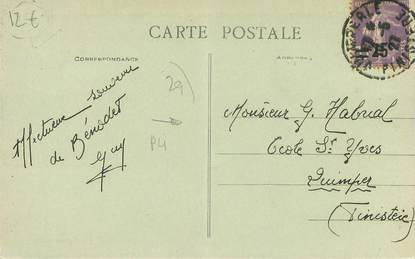 12 €
CARTE POSTALE
CORRESPONDANCE
ADRESSE
29
P4
Affectueux souvenir
de Bénodet
Guy
Monsieur G. Mabual
Ecole St Yves
Quimper
(Finistère)
QUIMPERLE
FINISTERE